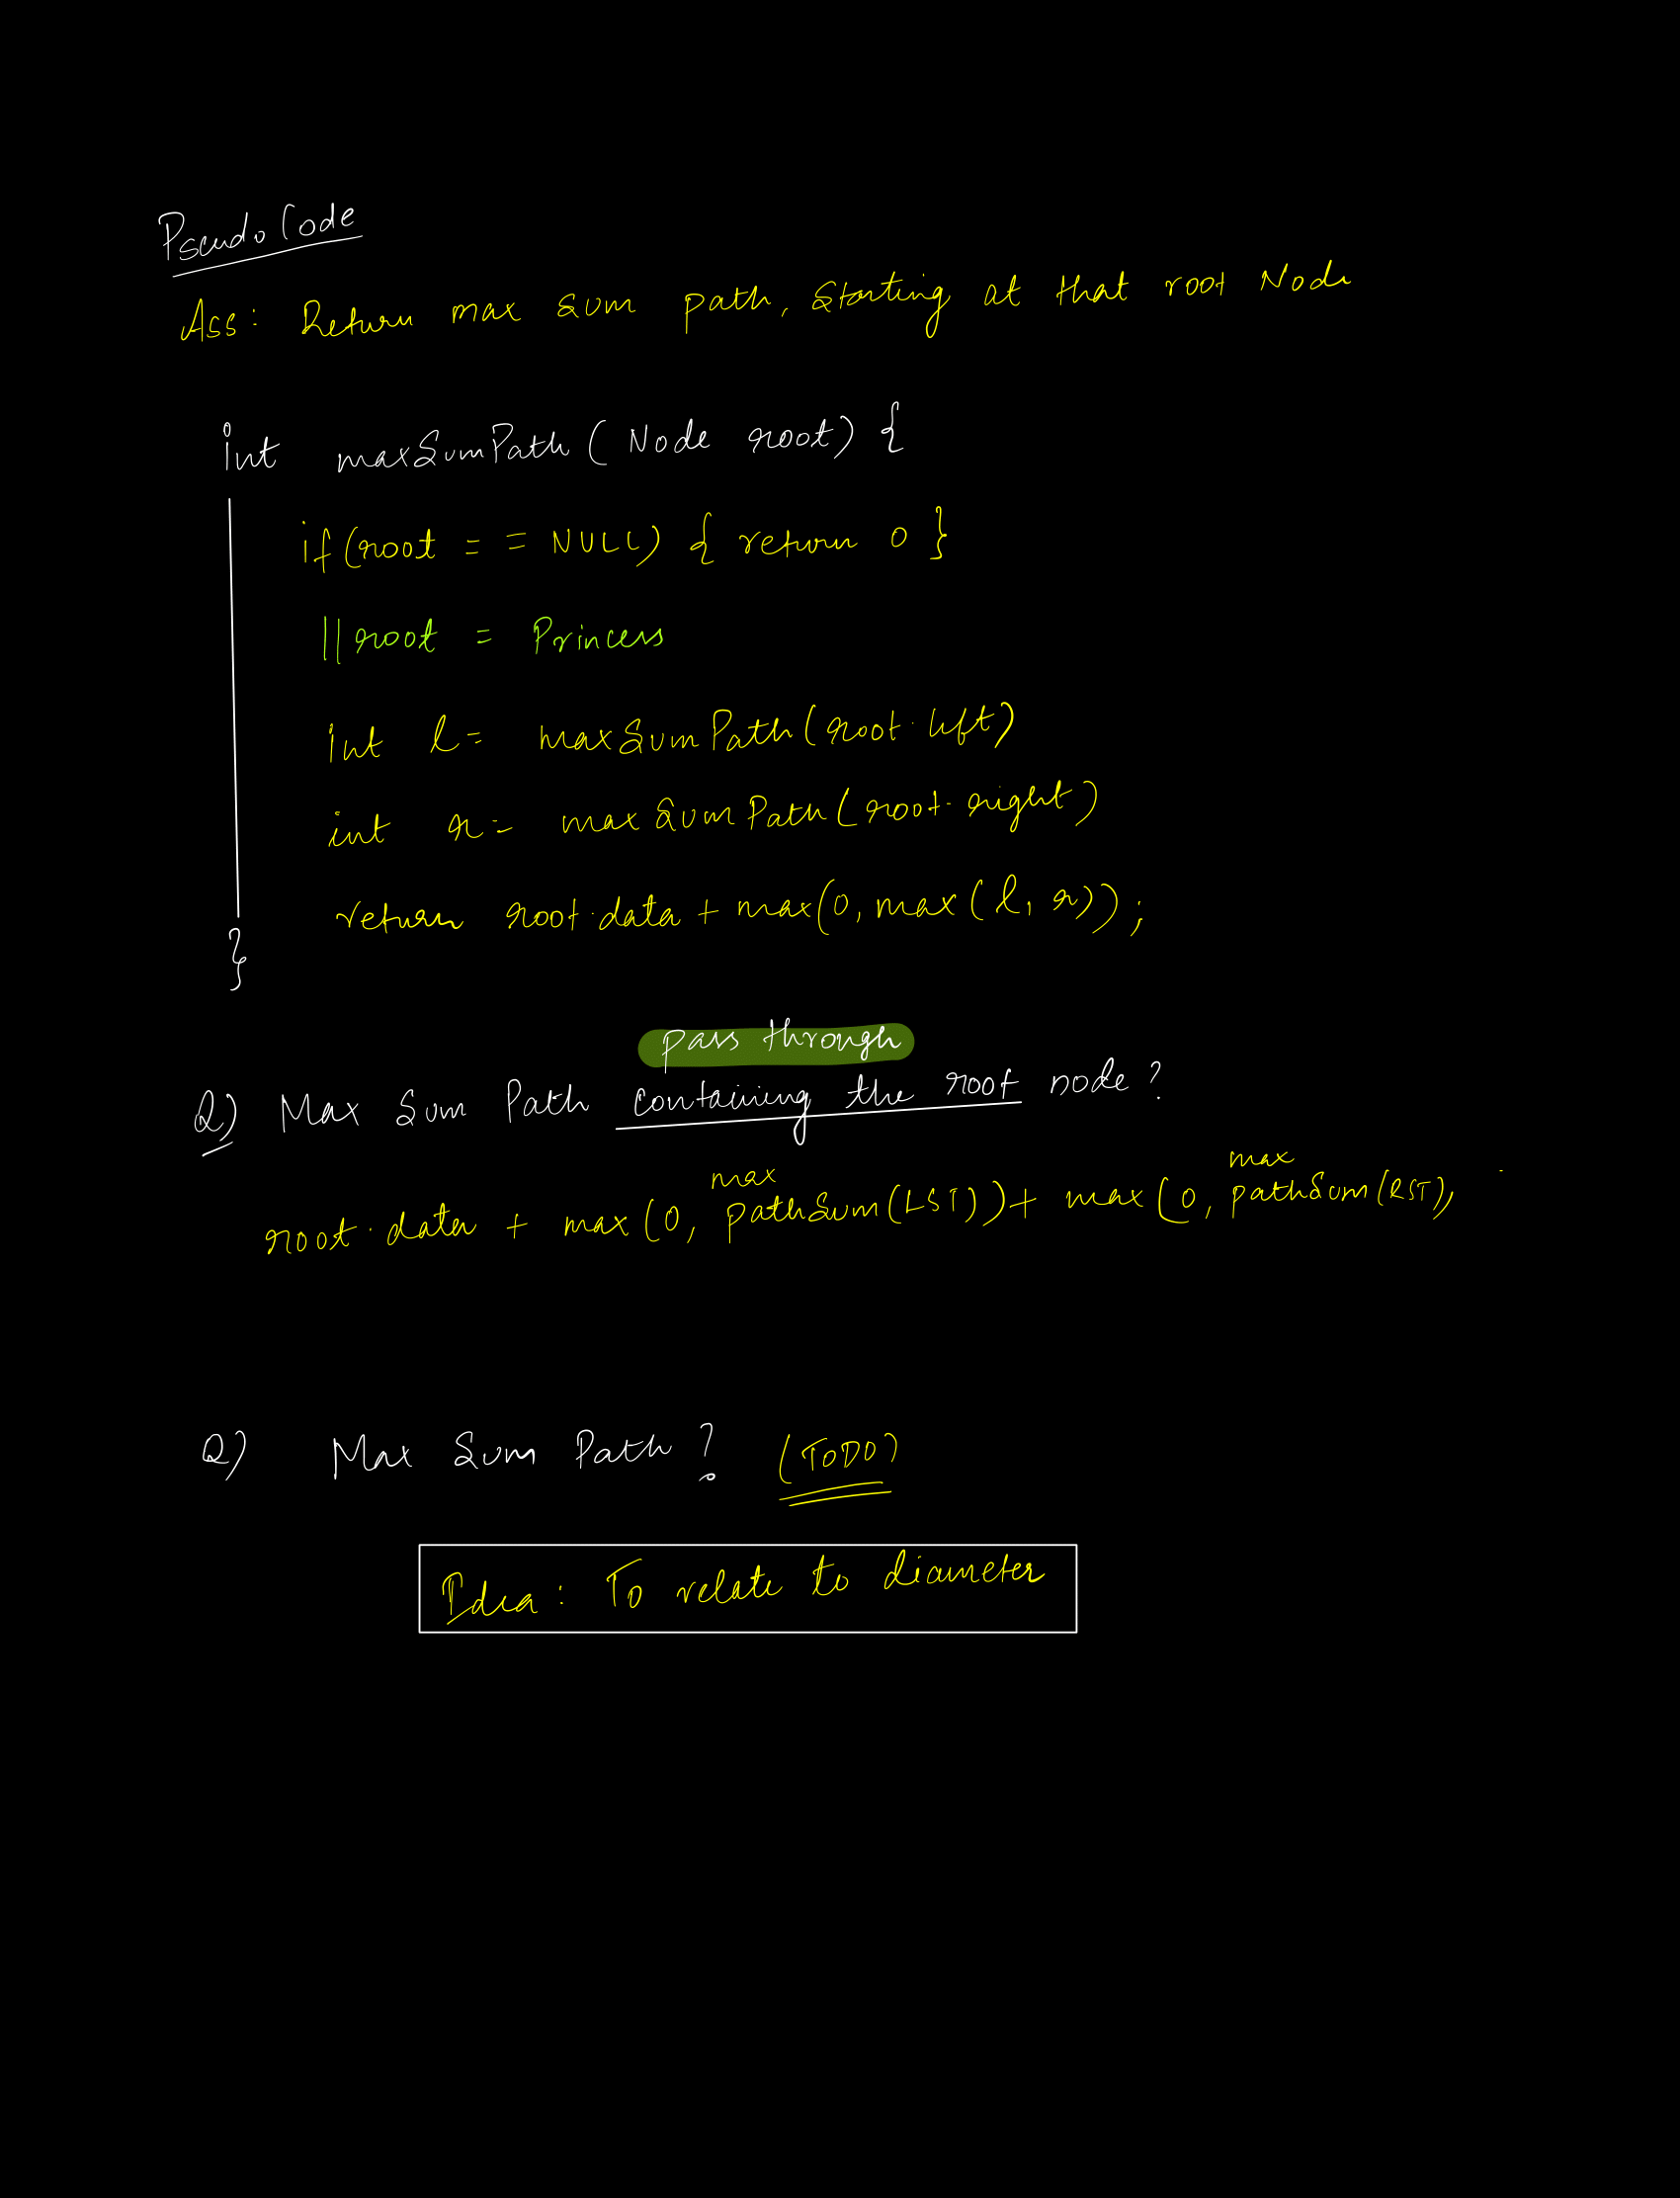 Pseudo Code
Ass: Return max sum path, Starting at that root Node
int maxSumPath ( Node root) {
if (root = = NULL) { return 0 }
|| root = Princess
int l = maxSumPath (root.left)
int r = maxSumPath (root.right)
return root.data + max(0, max (l, r));
}
pass through
Q) Max Sum Path containing the root node?
max max
root.data + max (0, pathSum (LST)) + max (0, pathSum (RST),
Q) Max Sum Path? (TODO)
Idea : To relate to diameter